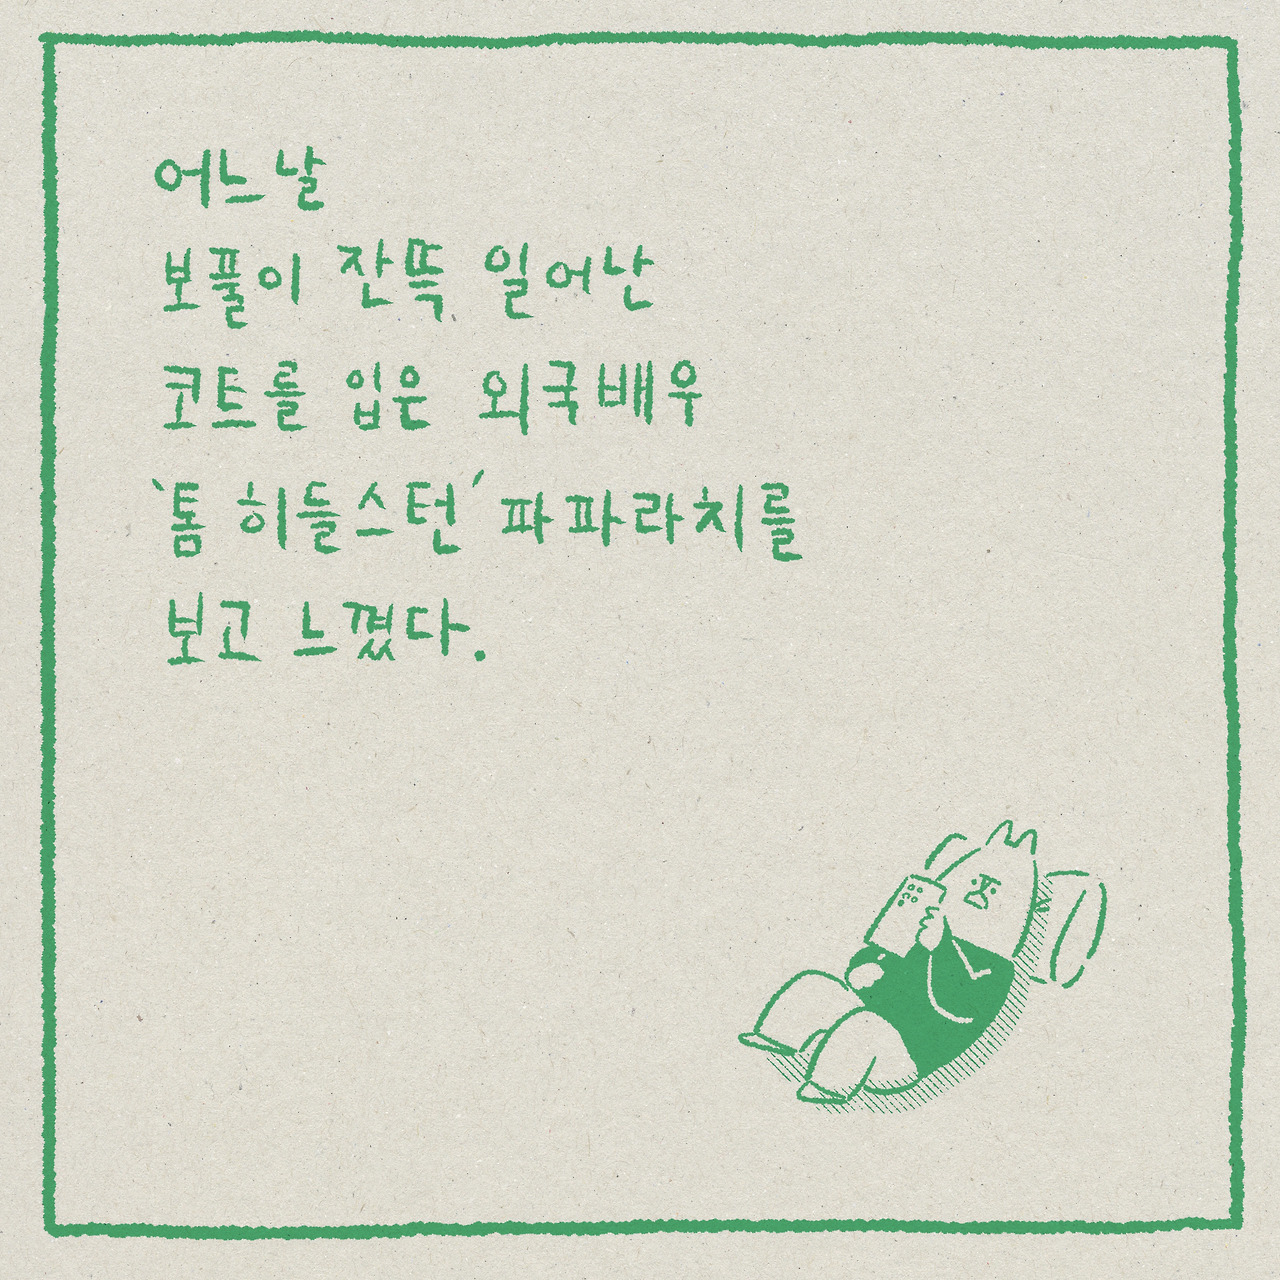 어느날
보풀이 잔뜩 일어난
코트를 입은 외국배우
'톰 히들스턴' 파파라치를
보고 느꼈다.